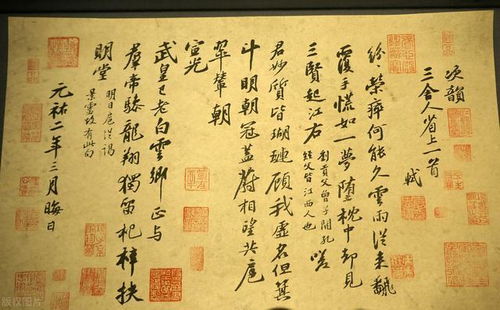 次韻
三舍人省上一首
軾
紛〻榮瘁何能久雲雨從来翻
覆手慌如一夢墮枕中却見
三賢起江右
劉貢父曾子開孔
經父皆江西人也
嗟
君妙質皆瑚璉顧我虛名但箕
斗明朝冠蓋蔚相望共扈
翠輦朝
宣光
武皇已老白雲鄉正與
羣帝驂龍翔獨留杞梓扶
明堂
明日扈從謁
景靈故有此句
元祐二年三月晦日